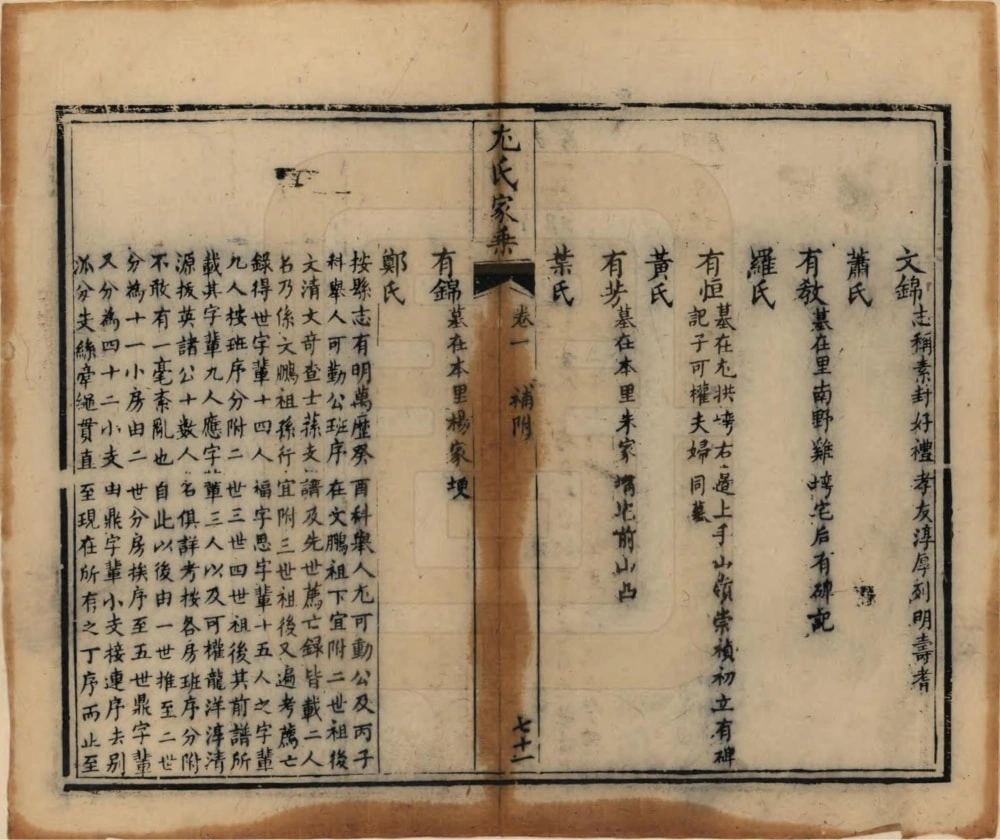 文錦志稱素封好禮孝友淳厚列明壽耆
蕭氏
有教墓在里南野雞垮宅后有碑記
羅氏
有恒墓在尢拱垮右邊上手山嶺崇禎初立有碑
記子可權夫婦同墓
黃氏
有芳墓在本里朱家壻北前山凸
葉氏
尢氏家乘
卷一 補附
七十一
有錦墓在本里楊家埂
鄭氏
按縣志有明萬歷癸酉科舉人尢可動公及丙子
科舉人可勤公班序在文鵬祖下宜附二世祖後
文清文奇查士蓀支譜及先世薦亡録皆載二人
名乃係文鵬祖孫行宜附三世祖後又遍考薦亡
録得世字輩十四人福字思字輩十五人之字輩
九人按班序分附二世三世四世祖後其前譜所
載其字輩九人應字輩三人以及可權龍洋淳清
源拔英諸公十數人名俱詳考按各房班序分附
不敢有一毫紊亂也自此以後由一世推至二世
分為十一小房由二世分房挨序至五世鼎字輩
又分為四十二小支由鼎字輩小支接連序去別
派分支絲牽繩貫直至現在所有之丁序而止至